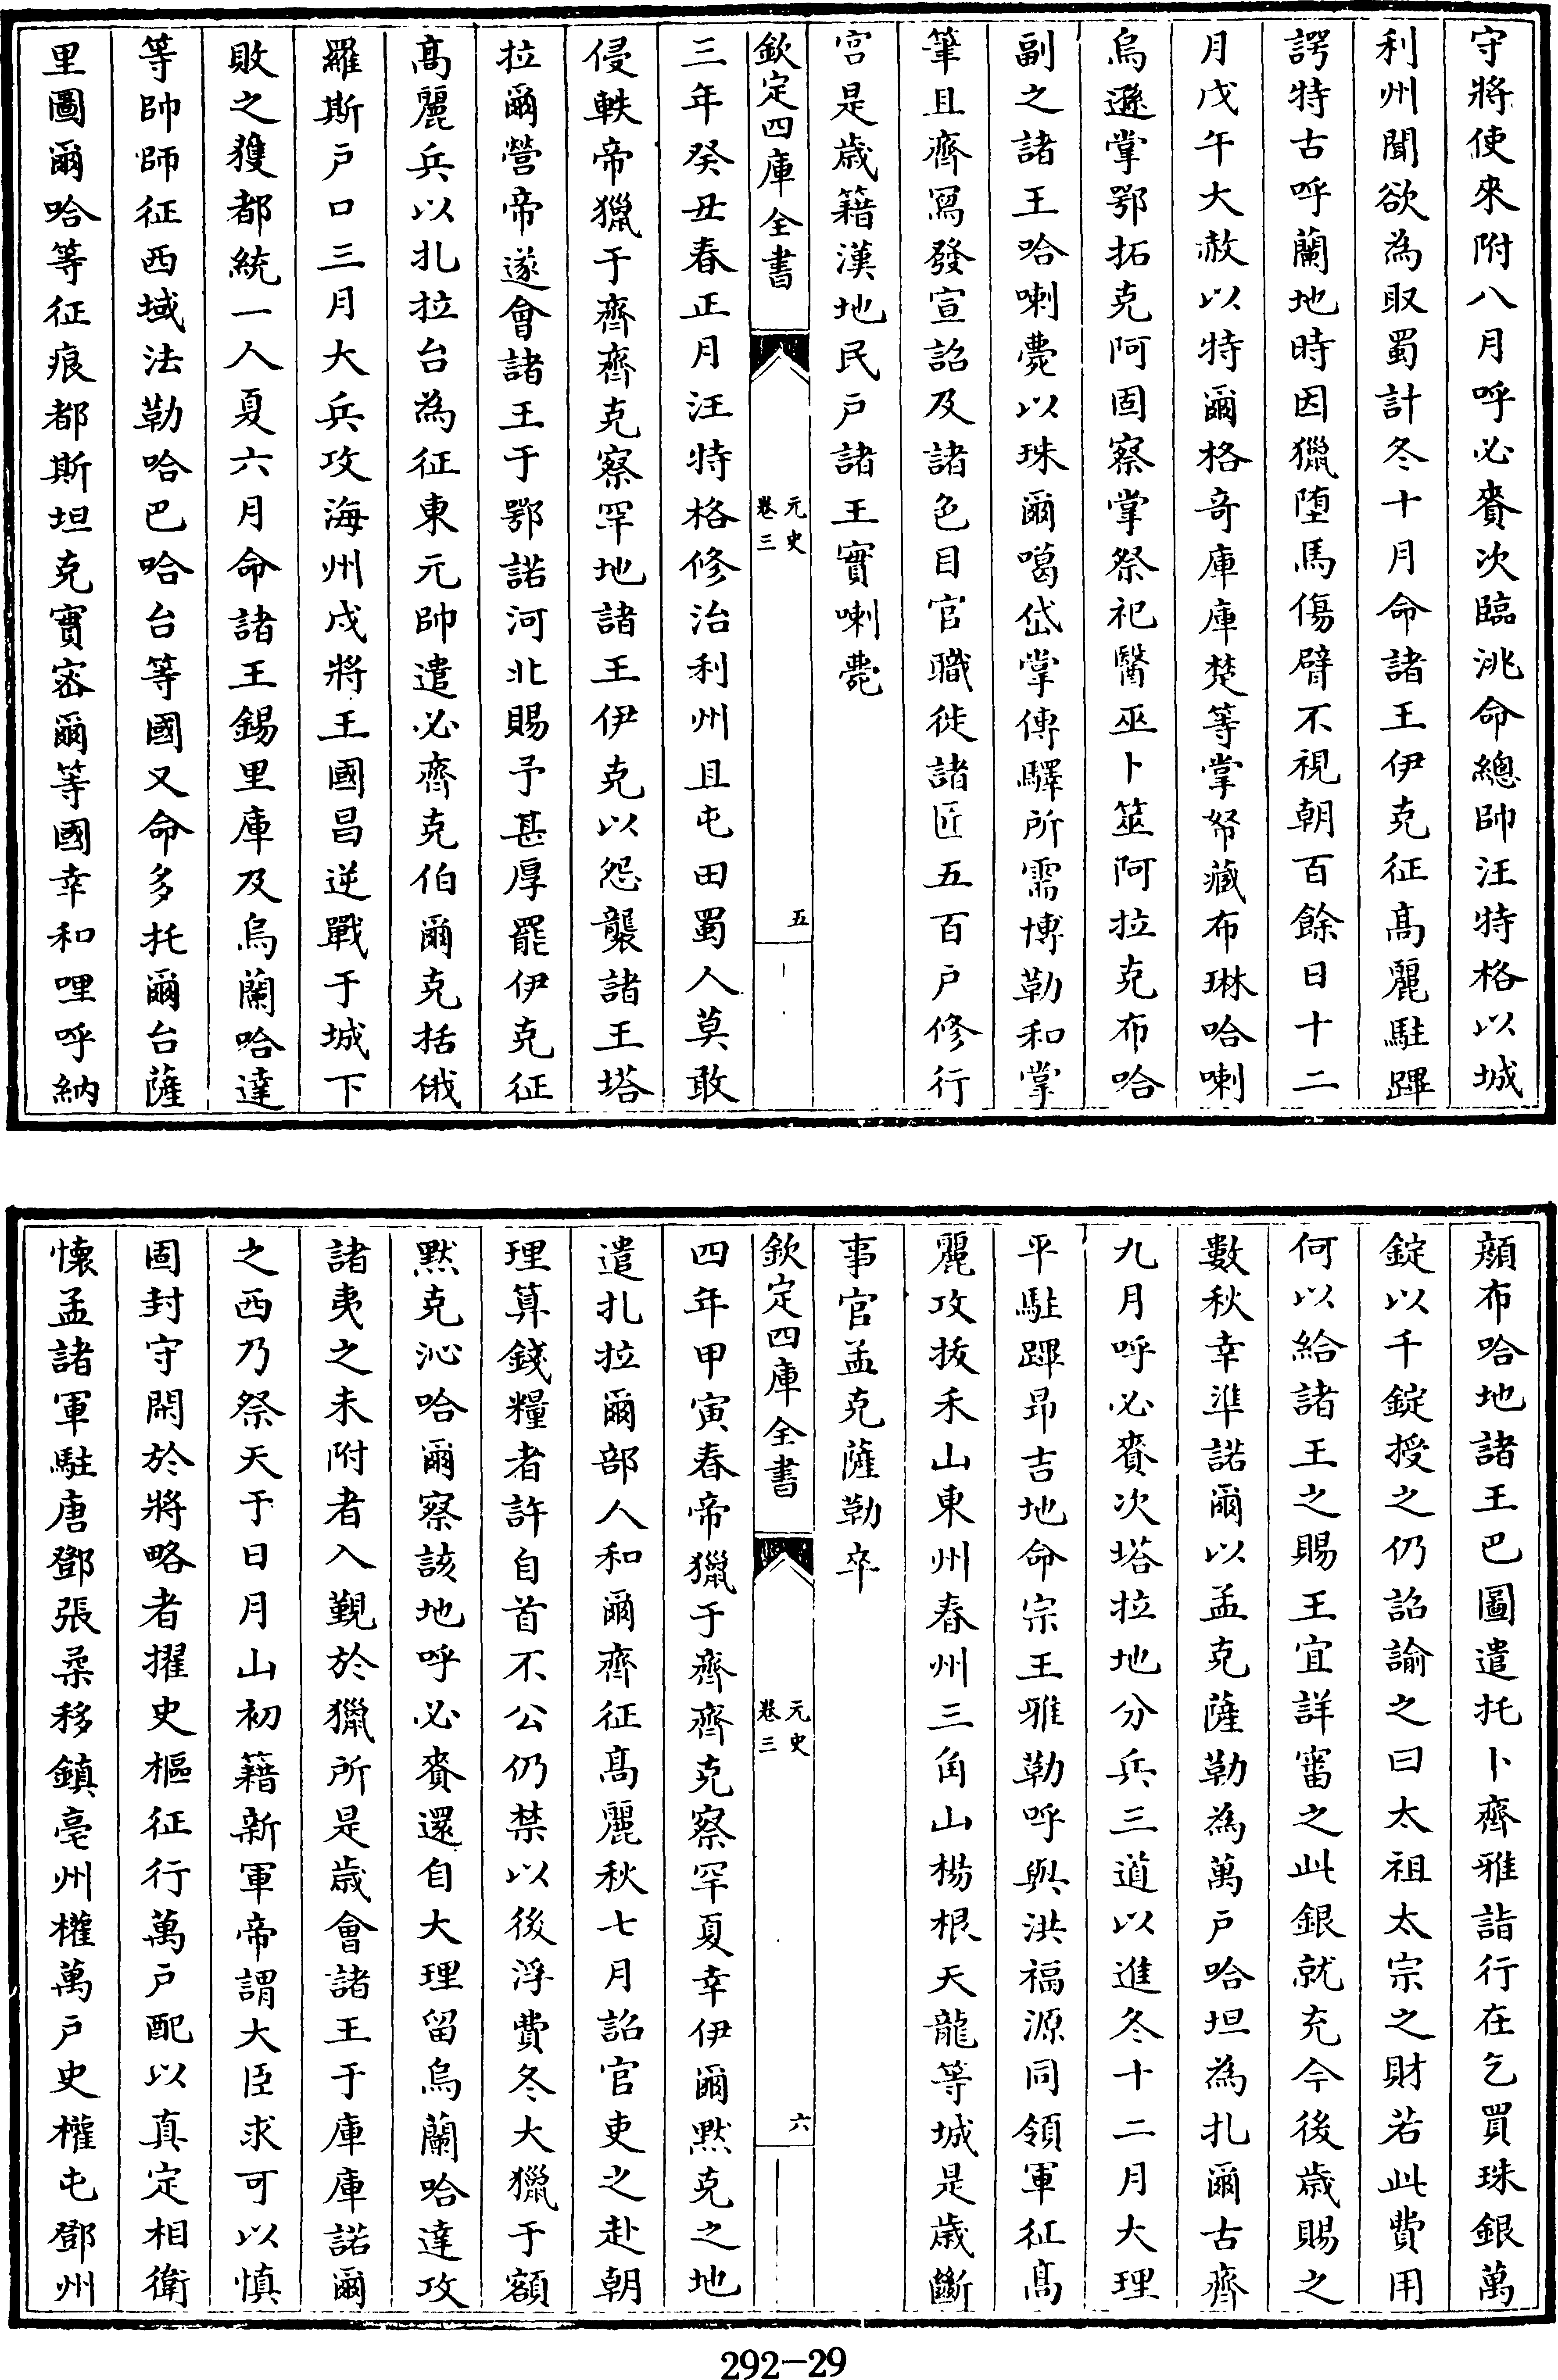 守將使來附八月呼必賚次臨洮命總帥汪特格以城
利州聞欲為取蜀計冬十月命諸王伊克征髙麗駐蹕
諤特古呼蘭地時因獵墮馬傷臂不視朝百餘日十二
月戊午大赦以特爾格竒庫庫楚等掌帑藏布琳哈喇
烏遜掌鄂拓克阿固察掌祭祀醫巫卜筮阿拉克布哈
副之諸王哈喇薨以珠爾噶岱掌傳驛所需博勒和掌
筆且齊寫發宣詔及諸色目官職徙諸匠五百戶修行
宫是歲籍漢地民戶諸王實喇薨
欽定四庫全書
元史
卷三
五
三年癸丑春正月汪特格修治利州且屯田蜀人莫敢
侵軼帝獵于齊齊克察罕地諸王伊克以怨襲諸王塔
拉爾營帝遂會諸王于鄂諾河北賜予甚厚罷伊克征
髙麗兵以扎拉台為征東元帥遣必齊克伯爾克括俄
羅斯戶口三月大兵攻海州戍將王國昌逆戰于城下
敗之獲都統一人夏六月命諸王錫里庫及烏蘭哈達
等帥師征西域法勒哈巴哈台等國又命多托爾台薩
里圖爾哈等征痕都斯坦克實宻爾等國幸和哩呼納
顔布哈地諸王巴圖遣托卜齊雅詣行在乞買珠銀萬
錠以千錠授之仍詔諭之曰太祖太宗之財若此費用
何以給諸王之賜王宜詳審之此銀就充今後歲賜之
數秋幸準諾爾以孟克薩勒為萬戶哈坦為扎爾古齊
九月呼必賚次塔拉地分兵三道以進冬十二月大理
平駐蹕昂吉地命宗王雅勒呼與洪福源同領軍征髙
麗攻拔禾山東州春州三角山楊根天龍等城是歲斷
事官孟克薩勒卒
欽定四庫全書
元史
卷三
六
四年甲寅春帝獵于齊齊克察罕夏幸伊爾黙克之地
遣扎拉爾部人和爾齊征髙麗秋七月詔官吏之赴朝
理算錢糧者許自首不公仍禁以後浮費冬大獵于額
黙克沁哈爾察該地呼必賚還自大理留烏蘭哈達攻
諸夷之未附者入覲於獵所是歲會諸王于庫庫諾爾
之西乃祭天于日月山初籍新軍帝謂大臣求可以慎
固封守閑於將略者擢史樞征行萬戶配以真定相衛
懐孟諸軍駐唐鄧張柔移鎮亳州權萬戶史權屯鄧州
292-29